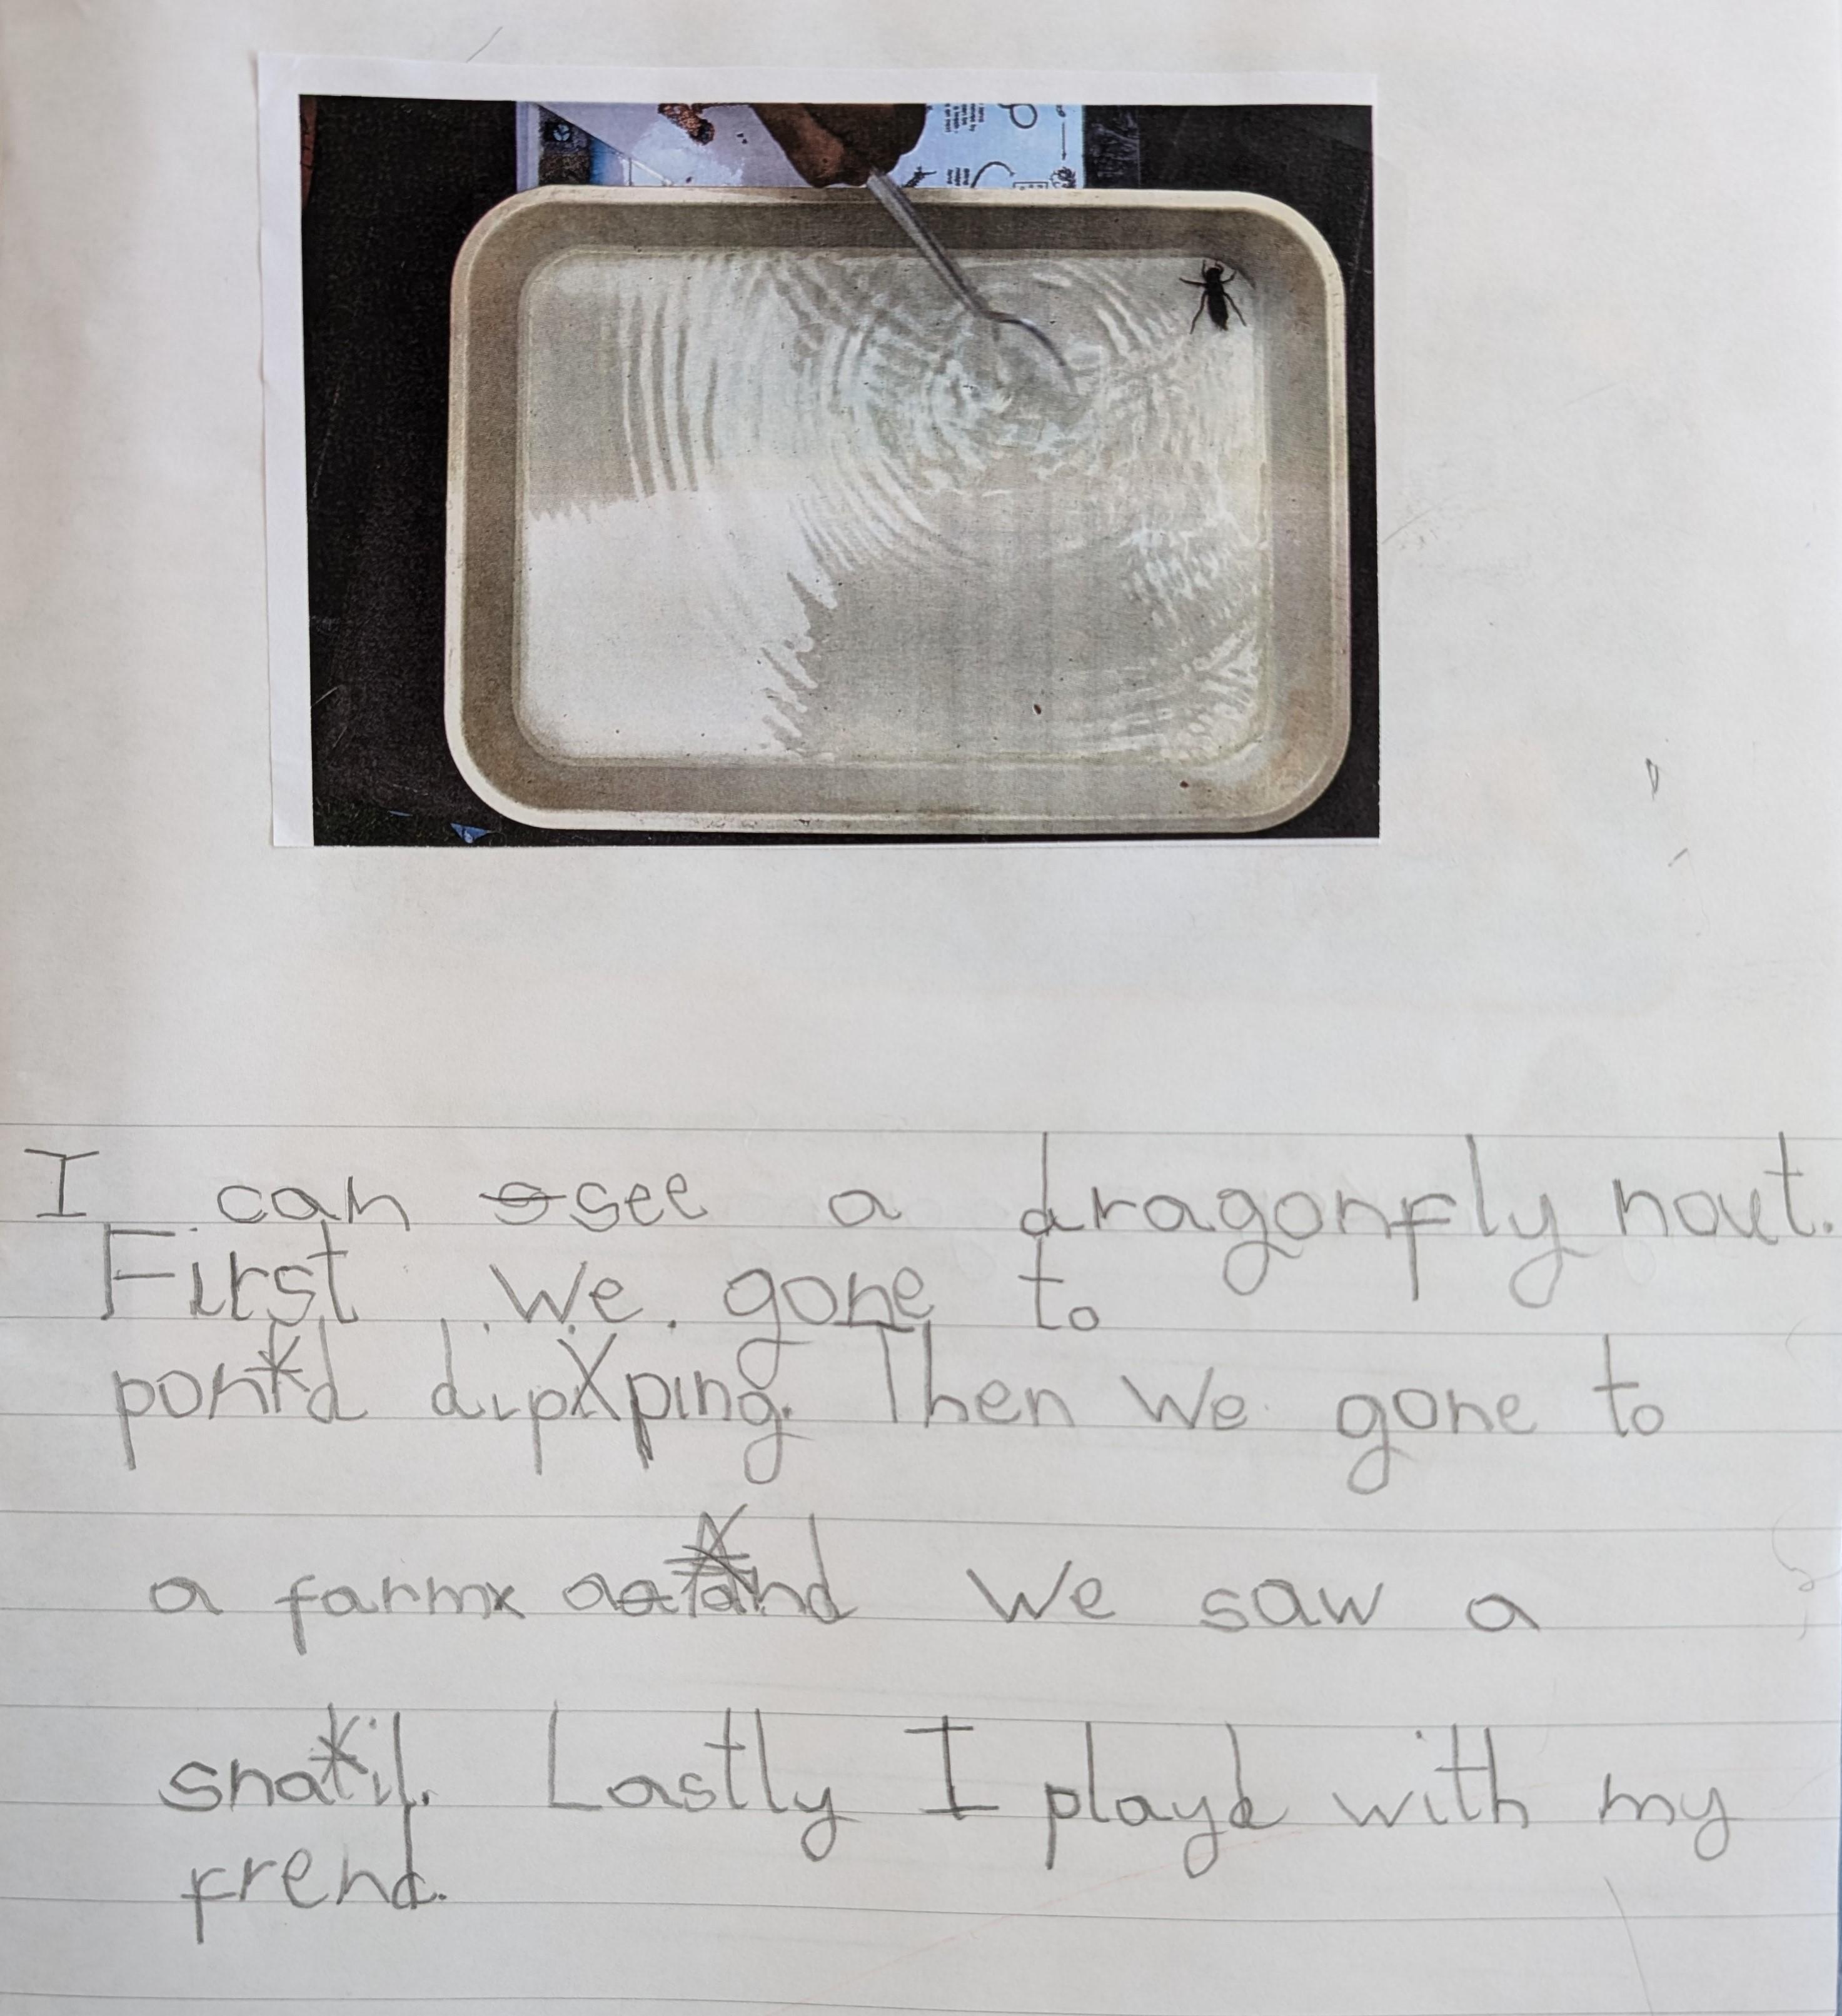 I can see a dragonfly nout.
First we gone to
pond dipping. Then we gone to
a farm and we saw a
snail. Lastly I playd with my
frend.